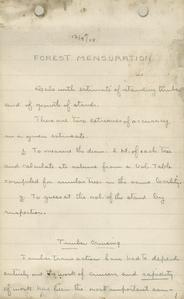 12/9/08
FOREST MENSURATION
Deals with estimates of standing timber
and of growth of stands.
There are two extremes of accuracy
in a given estimate.
1. To measure the diam. & ht. of each tree
and calculate its volume from a Vol. Table
compiled for similar trees in the same locality.
2. To guess at the vol. of the stand by
inspection.
Timber Cruising
Timber transactions have had to depend
entirely on work of cruisers and rapidity
of work has been the most important